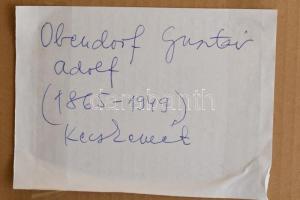 Obendorf Gustav
Adolf
(1865-1949)
Kecskemét